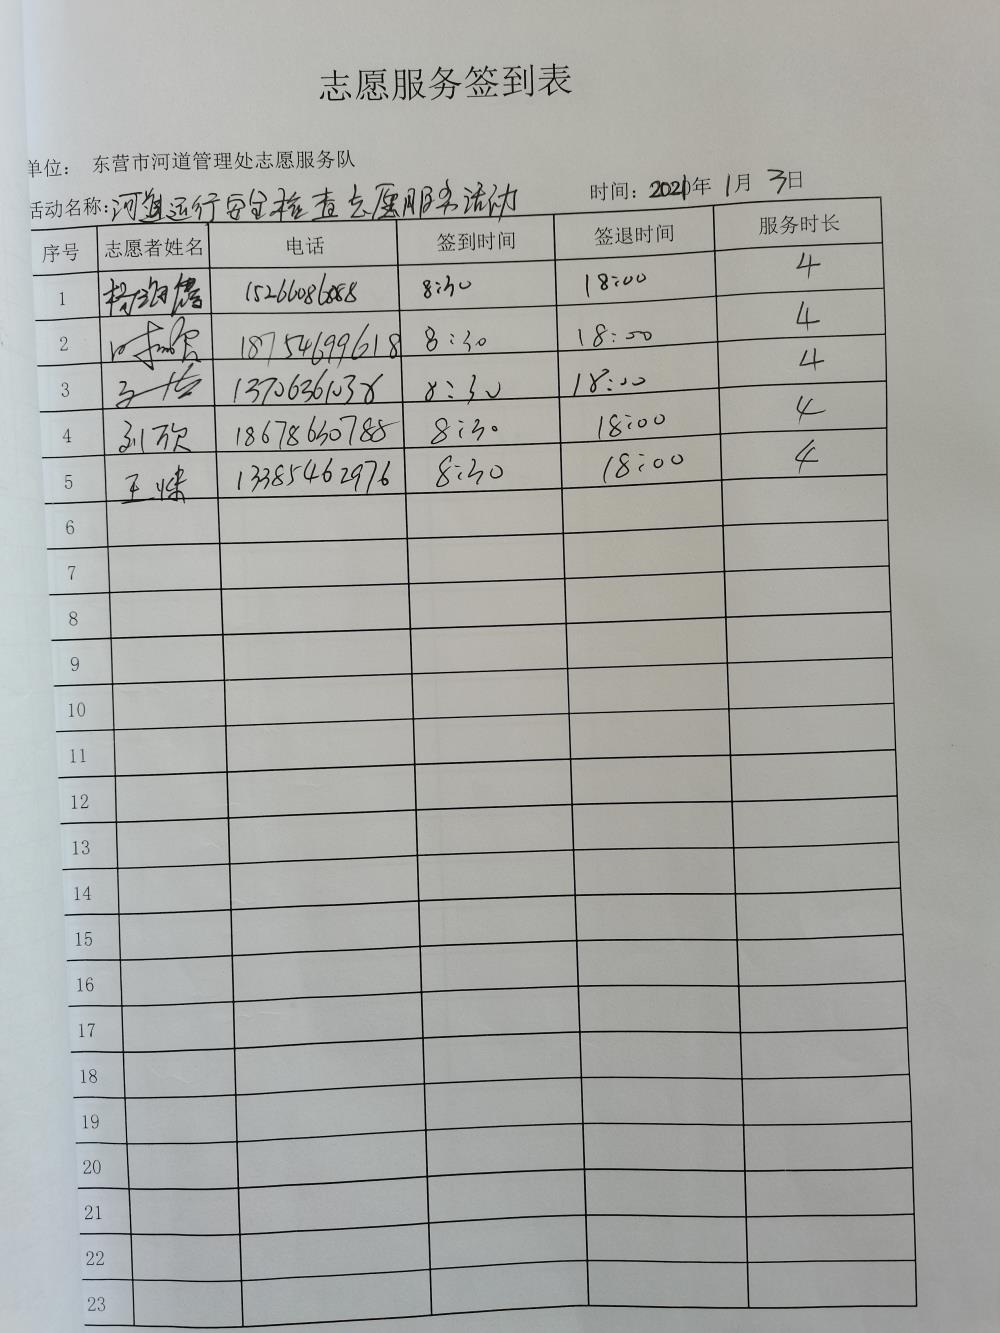 志愿服务签到表
单位： 东营市河道管理处志愿服务队
活动名称：河道运行安全检查志愿服务活动 时间：2021年 1月 3日
序号 志愿者姓名 电话 签到时间 签退时间 服务时长
1 15266086888 8:30 18:00 4
2 18754699618 8:30 18:00 4
3 13706361038 8:30 18:00 4
4 刘欣 18678630788 8:30 18:00 4
5 王 13385462976 8:30 18:00 4
6
7
8
9
10
11
12
13
14
15
16
17
18
19
20
21
22
23